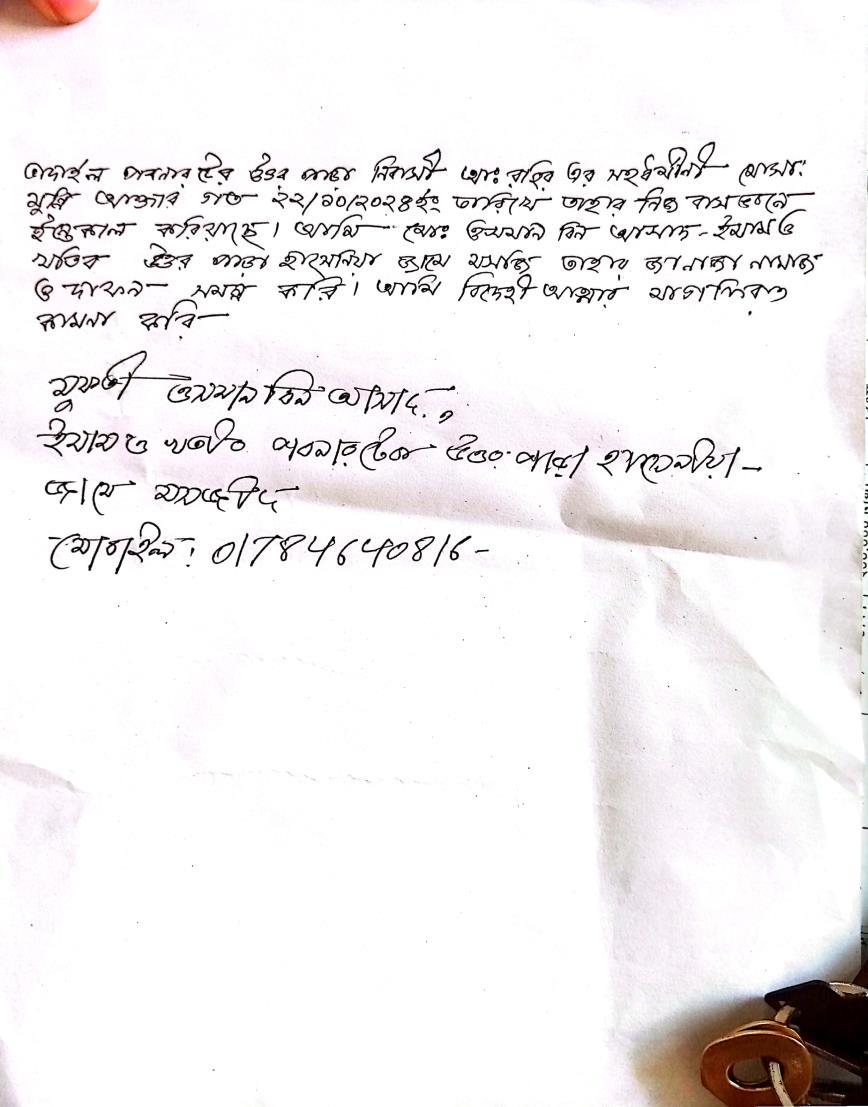 পাবনার টেক উত্তর পাড়া নিবাসী আঃ রহিম এর সহধর্মীনী মোসাঃ
আক্তার গত ২২/১০/২০২৪ইং তারিখে তাহার নিজ বাসভবনে
ইন্তেকাল করিয়াছে। আমি মোঃ ওসমান বিন আসাদ - ইমাম ও
খতিব উত্তর পাড়া হাসেনিয়া জামে মসজিদ তাহার জানাজা নামাজ
ও দাফন সমপন্ন করি। আমি বিদেহী আত্মার মাগফিরাত
কামনা করি -
মুফতী ওসমান বিন আসাদ,
ইমাম ও খতীব পাবনার টেক উত্তর পাড়া হাসেনীয়া -
জামে মসজীদ
মোবাইল: 01784640816-